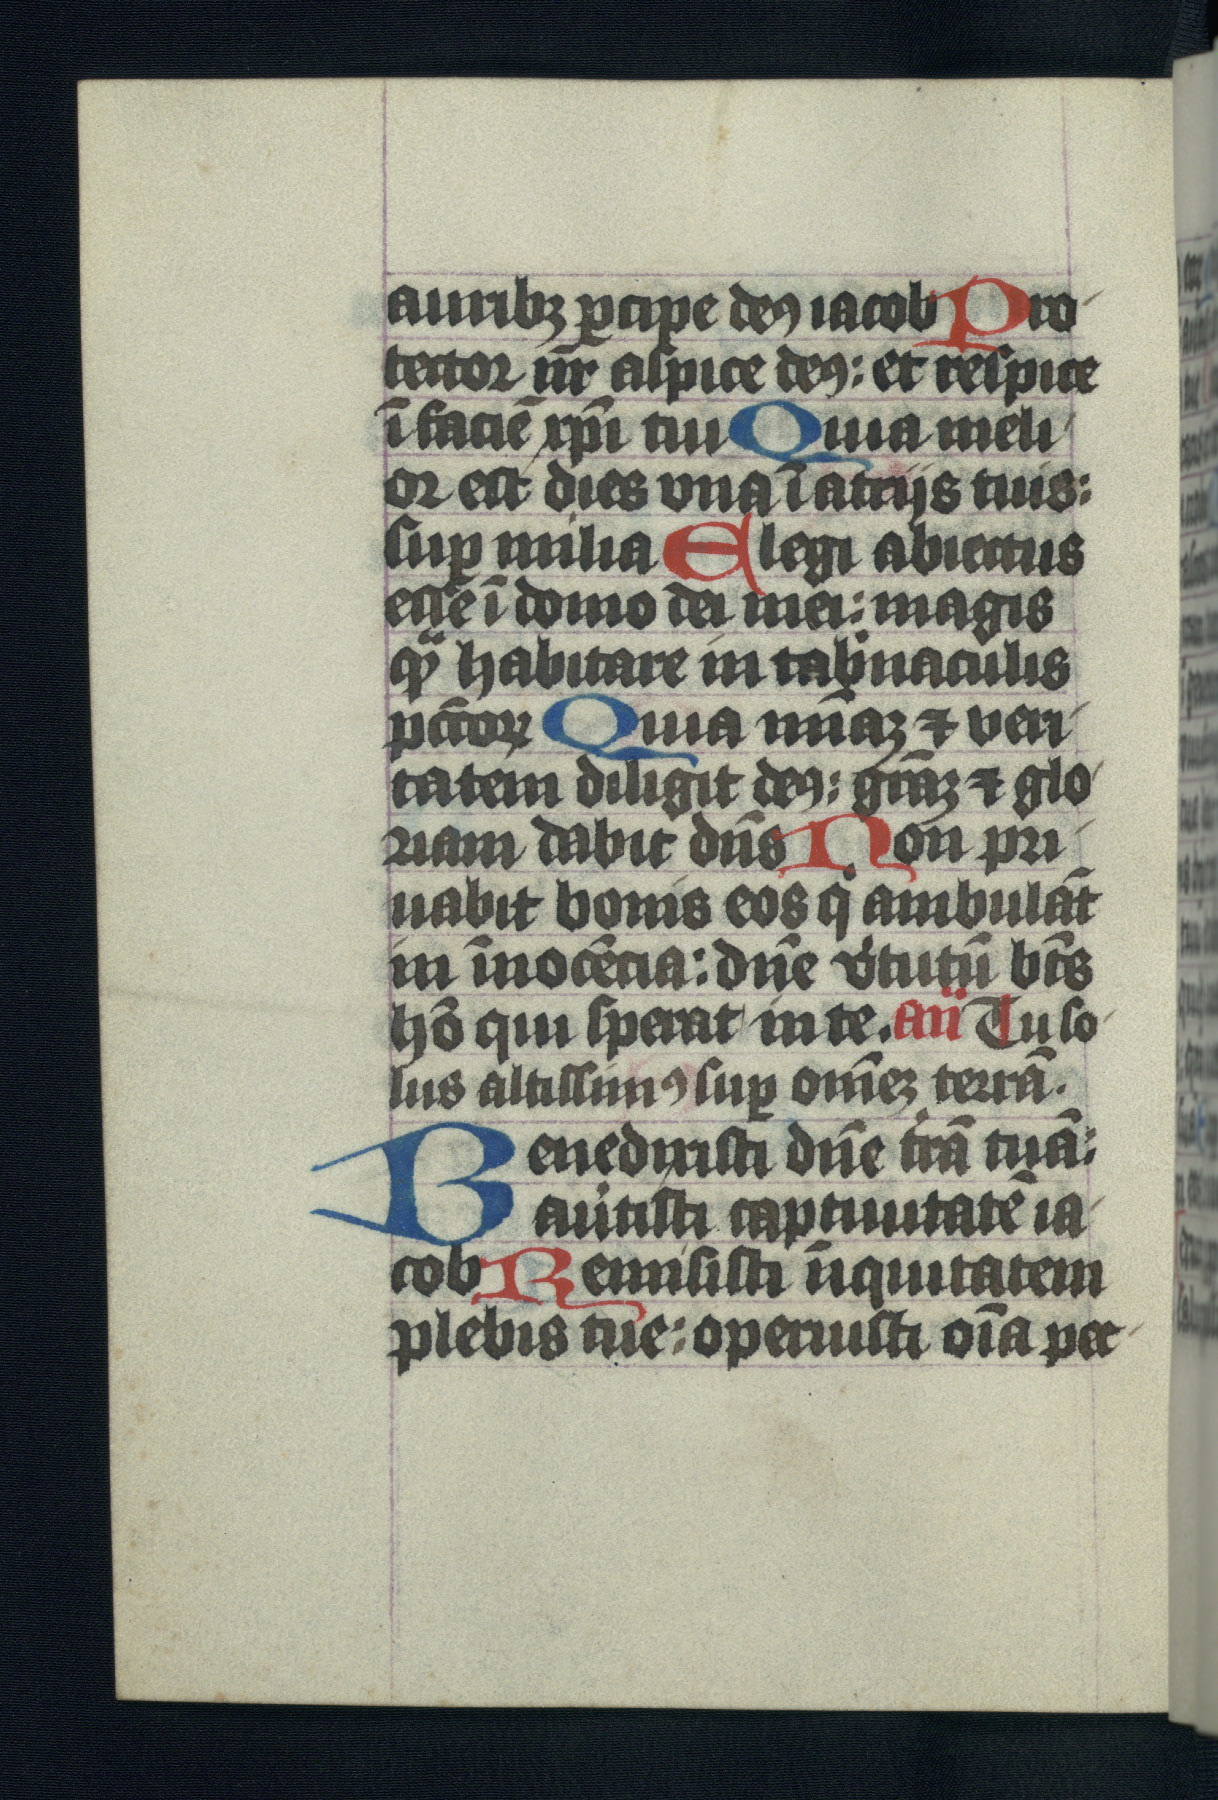 auribꝫ ꝑcipe deꝰ iacob Pro-
tector nr̄ aspice deꝰ: et respice
ī faciē xp̄i tui Quia meli-
or est dies vna ī atrijs tuis:
suꝑ milia Elegi abiectus
esse ī domo dei mei: magis
qͣꝫ habitare in tab̓naculis
pctōꝝ Quia mīaꝫ ⁊ veri-
tatem diligit deꝰ: grāꝫ ⁊ glo-
riam dabit dn̄s Non pri-
uabit bonis eos qͥ ambulāt
in īnocēcia: dn̄e v̓tutū bt̄s
hō qui sperat in te. añ Tu so-
lus altissimꝰ suꝑ om̄eꝫ terrā.
Benedixisti dn̄e t̓rā tuā:
au̓tisti captiuitatē ia-
cob Remisisti īiquitatem
plebis tue: operuisti oīa pec-